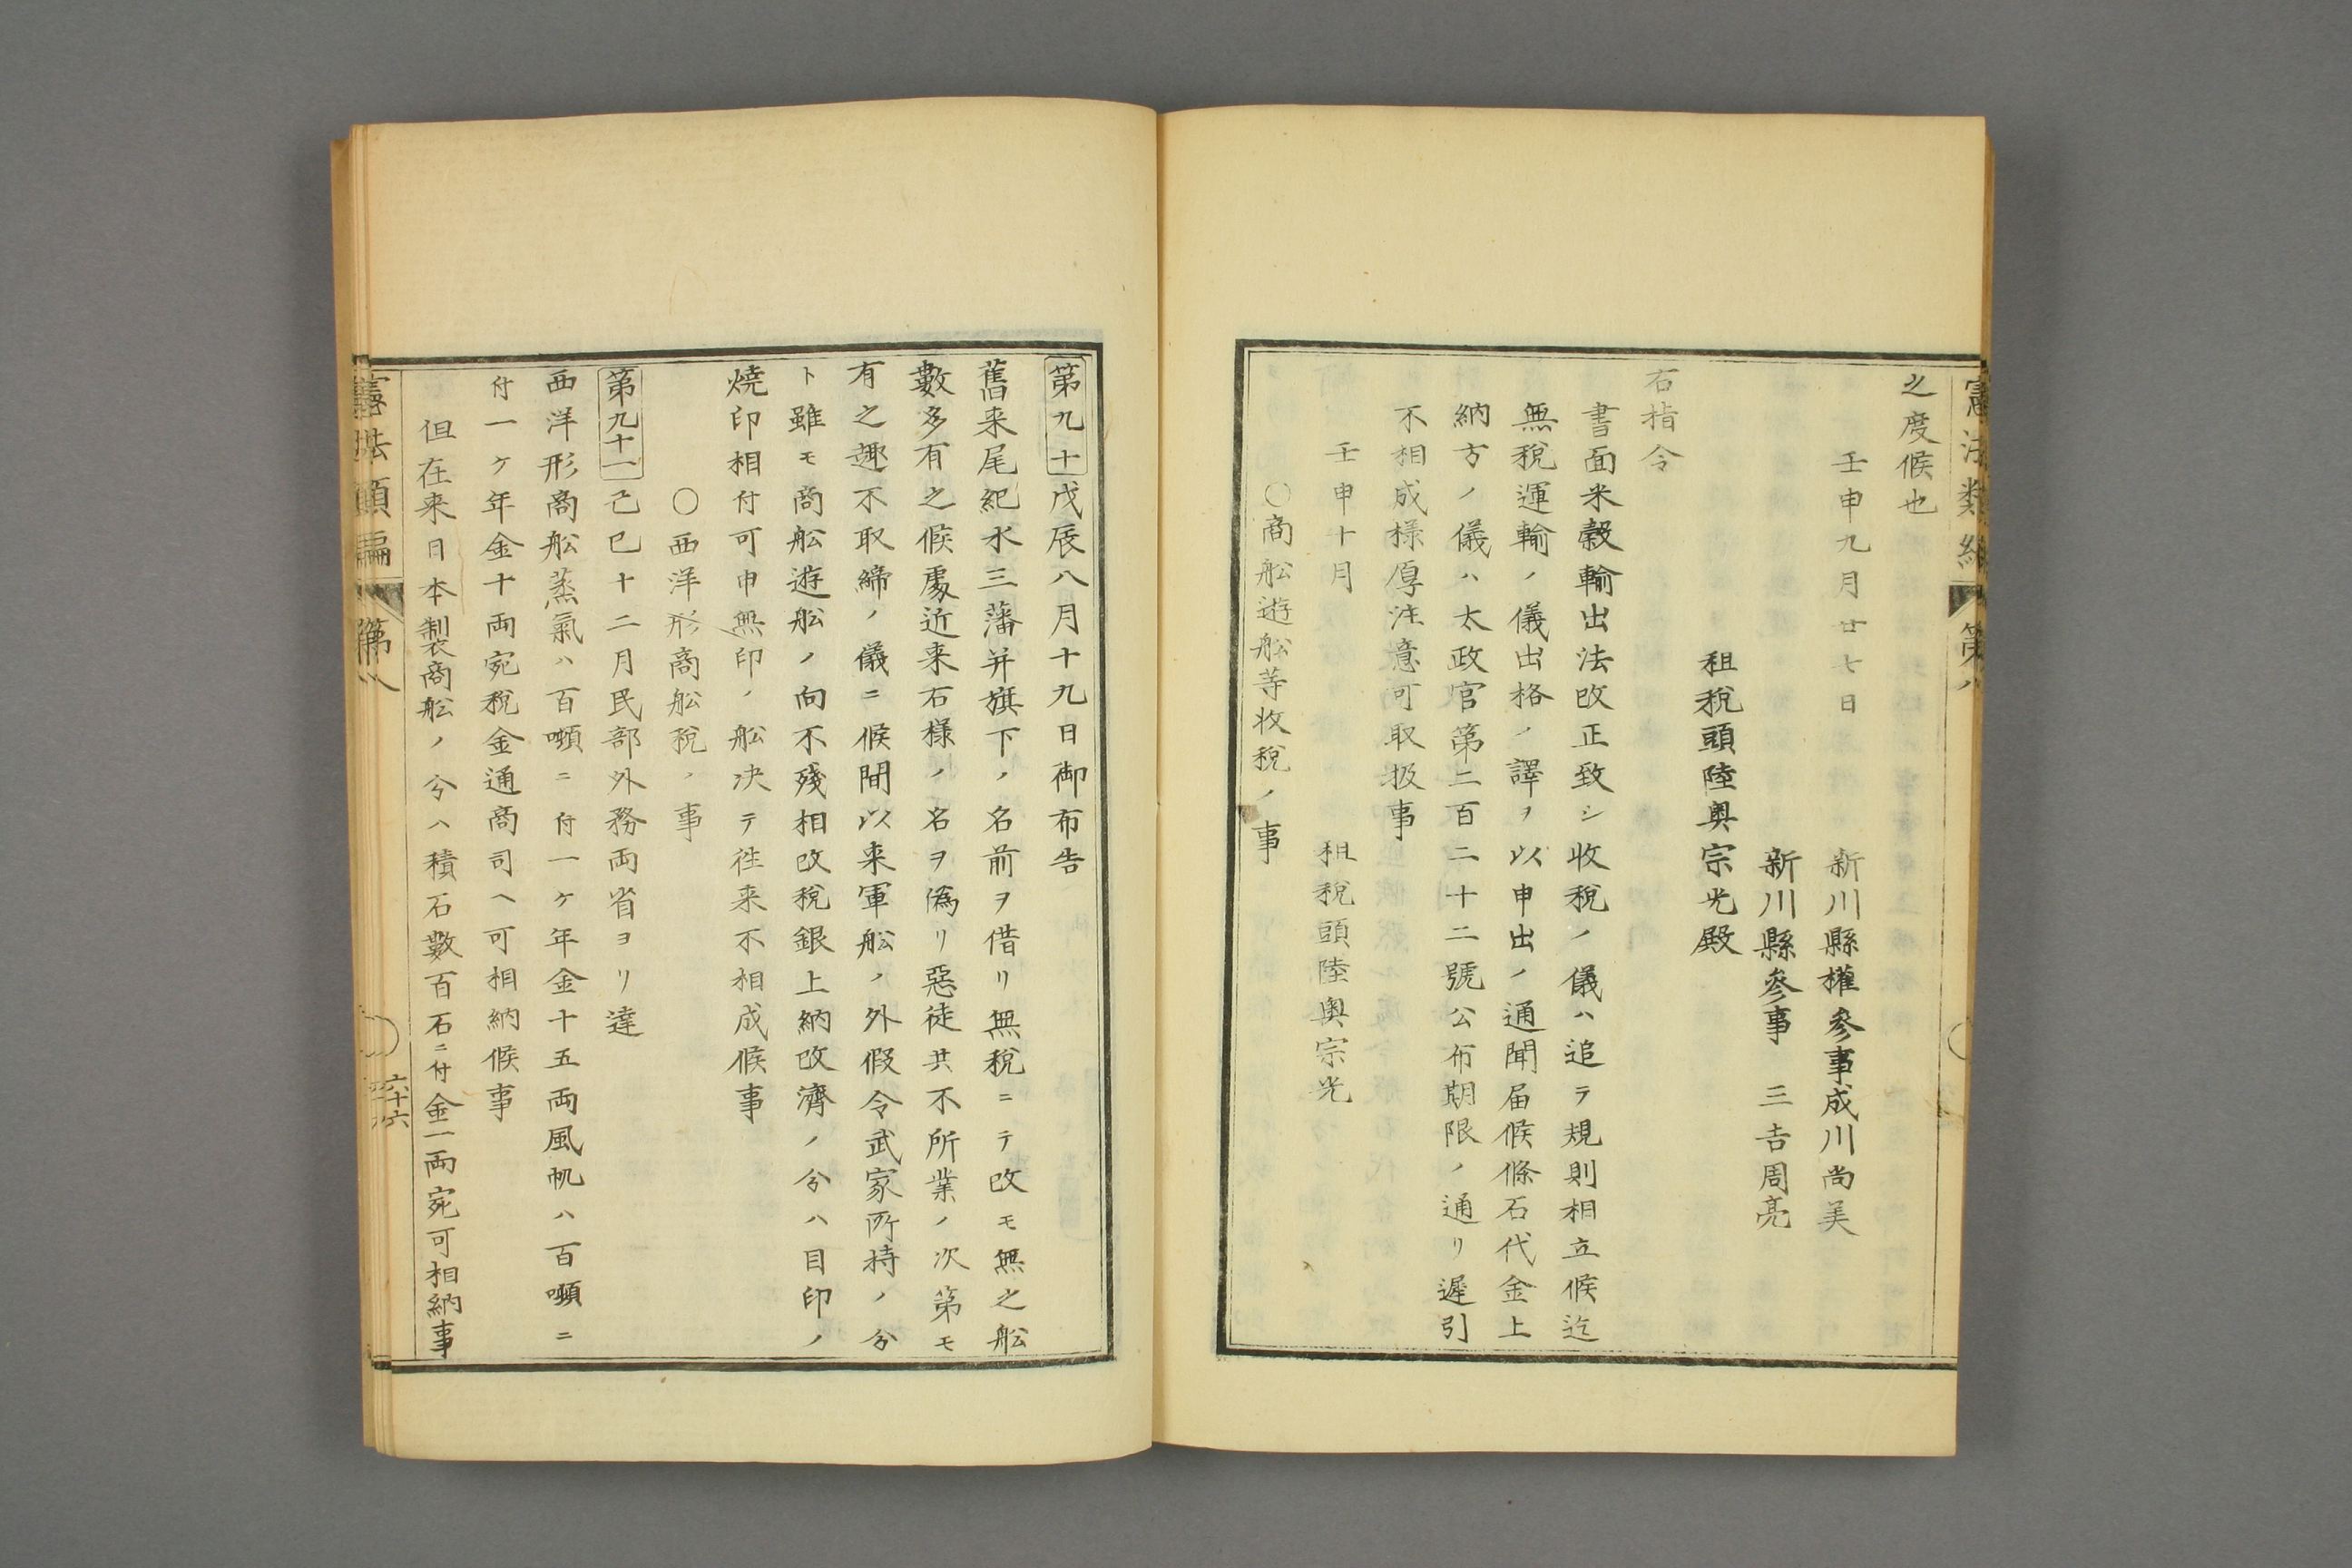 憲法類編 第八
之度候也
壬申九月廿七日
新川縣權參事成川尚美
新川縣參事 三吉周亮
租税頭陸奥宗光殿
右指令
書面米穀輸出法改正致シ收税ノ儀ハ追テ規則相立候迄
無税運輸ノ儀出格ノ譯ヲ以申出ノ通聞届候條石代金上
納方ノ儀ハ太政官第二百二十二號公布期限ノ通リ遲引
不相成様厚注意可取扱事
壬申十月
租税頭陸奥宗光
〇商舩遊舩等收税ノ事
第九十 戊辰八月十九日御布告
舊来尾紀水三藩并旗下ノ名前ヲ借リ無税ニテ改モ無之舩
數多有之候處近来右様ノ名ヲ偽リ惡徒共不所業ノ次第モ
有之趣不取締ノ儀ニ候間以来軍舩ノ外假令武家所持ノ分
ト雖モ商舩遊舩ノ向不殘相改税銀上納改濟ノ分ハ目印ノ
燒印相付可申無印ノ舩决テ徃来不相成候事
〇西洋形商舩税ノ事
第九十一 己巳十二月民部外務両省ヨリ達
西洋形商舩蒸氣ハ百噸ニ付一ケ年金十五両風帆ハ百噸ニ
付一ケ年金十両宛税金通商司ヘ可相納候事
但在来日本製商舩ノ分ハ積石數百石ニ付金一両宛可相納事
憲法類編 第八
六十六